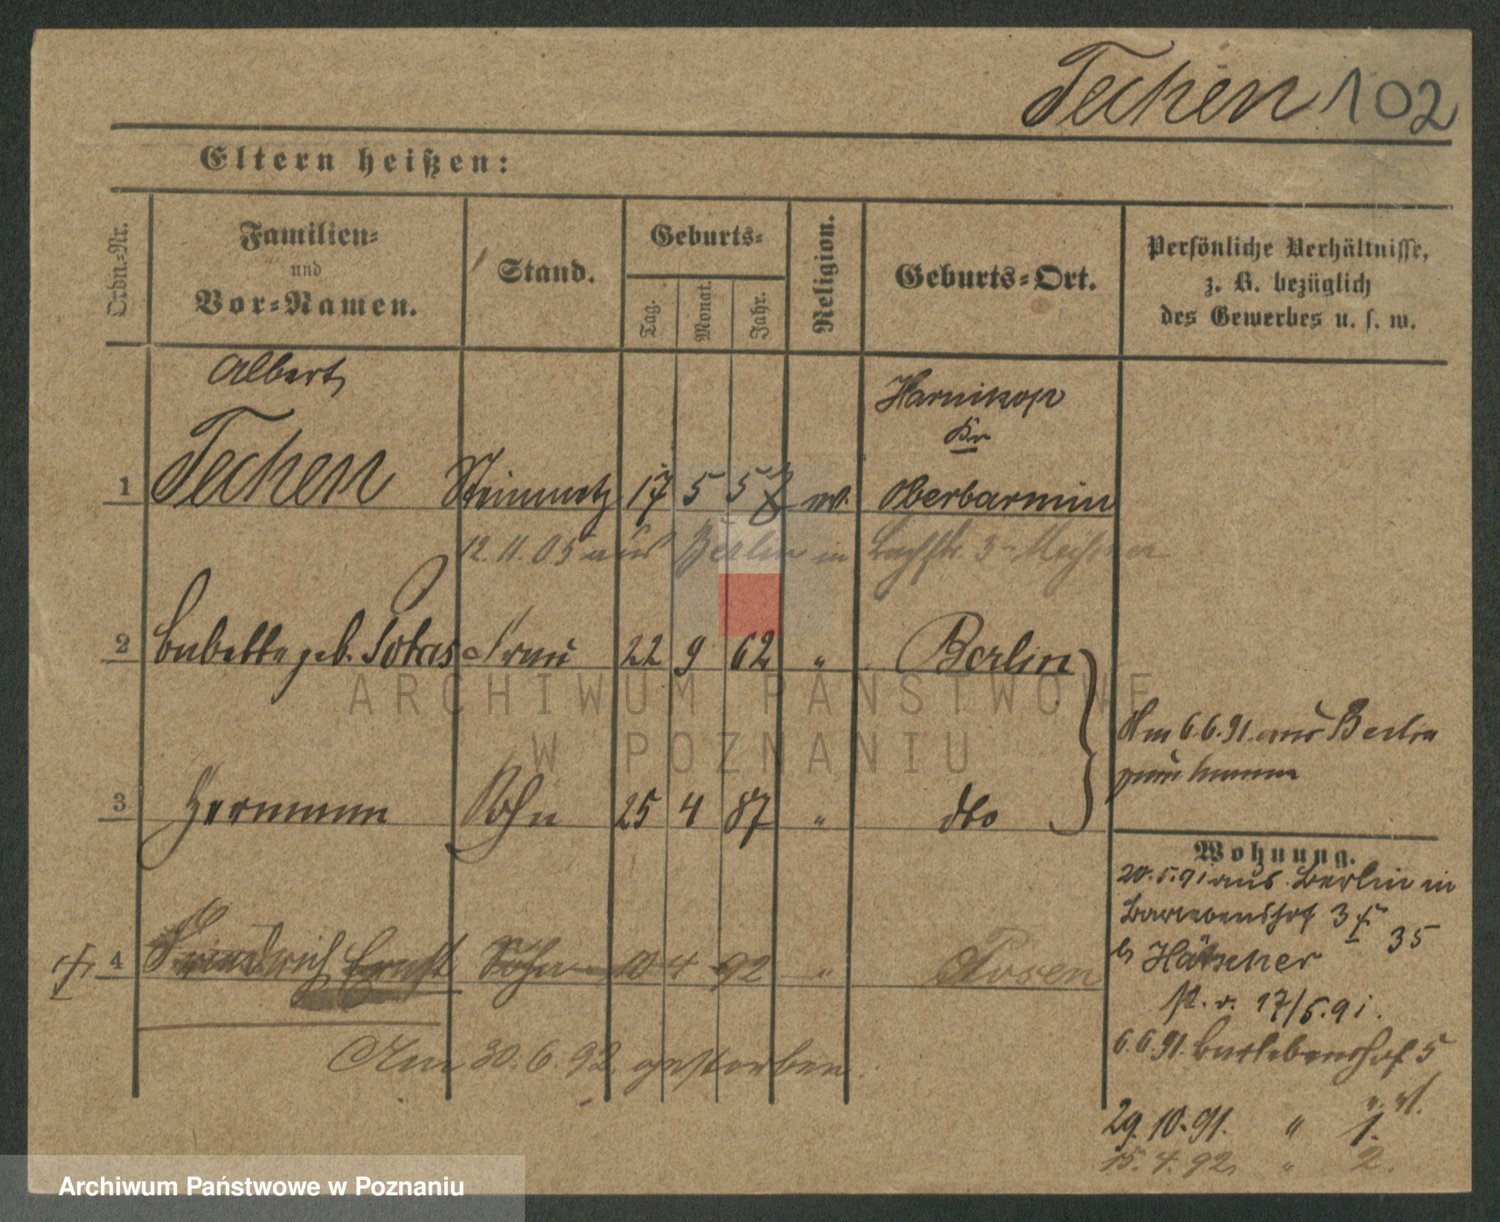 Techen 102
Eltern heißen:
Ordn.-Nr.
Familien-
und
Vor-Namen.
Stand.
Geburts-
Tag.
Monat.
Jahr.
Religion.
Geburts-Ort.
Persönliche Verhältnisse,
z. B. bezüglich
des Gewerbes u. s. w.
Albert
Harnikop
Kr
1 Techen Steinmetz 17 5 57 ev. Oberbarmin
12.11.05 aus Berlin in 3
2 Babette geb. Frau 22 9 62 " Berlin
Am 6.6.91. aus Berlin
3 Hermann Sohn 25 4 87 " dto
Wohnung.
20.5.91 aus Berlin in
3
35
b/ Hätscher
17/5.91.
4 Friedrich Ernst Sohn 10 4 92 " Posen
6.6.91. 5
Am 30.6.92. gestorben.
29.10.91. " 1.
15.4.92. " 2.
ARCHIWUM PAŃSTWOWE
W POZNANIU
Archiwum Państwowe w Poznaniu